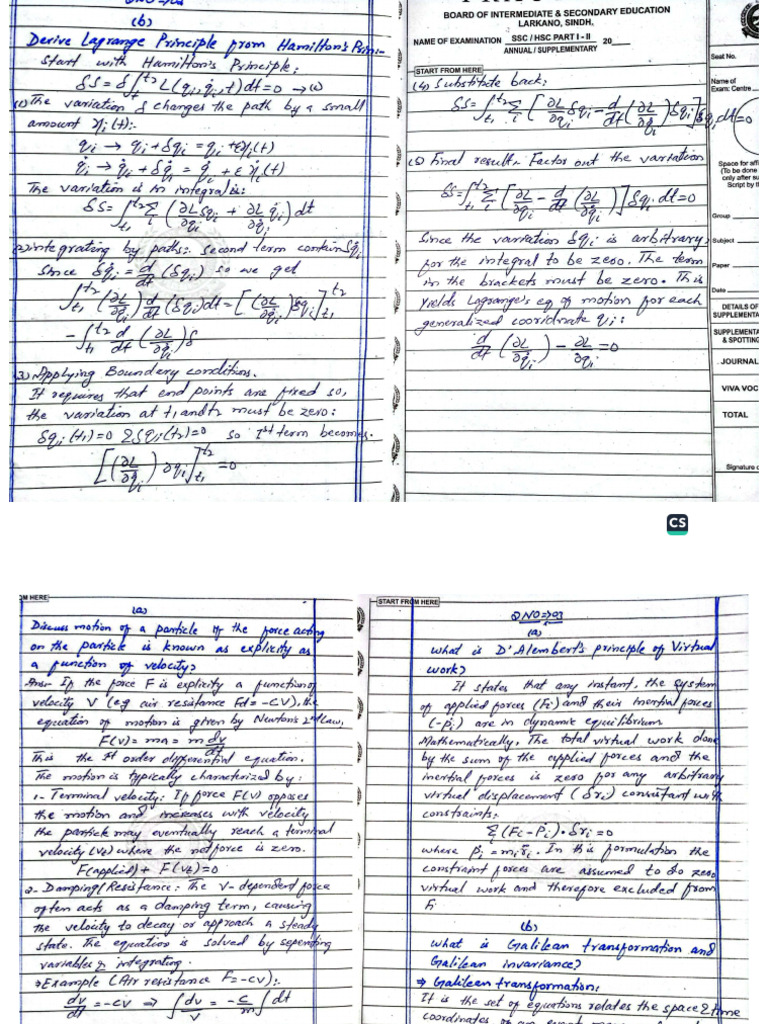 (b)
Derive Lagrange Principle from Hamilton's Prin:-
Start with Hamilton's Principle:
δS = δ∫t₁^t₂ L(qᵢ, q̇ᵢ, t) dt = 0 →(i)
(1) The variation δ changes the path by a small
amount ηᵢ(t):-
qᵢ → qᵢ + δqᵢ = qᵢ + εηᵢ(t)
q̇ᵢ → q̇ᵢ + δq̇ᵢ = q̇ᵢ + ε η̇ᵢ(t)
The variation is in integral is:
δS = ∫t₁^t₂ Σ (∂L/∂qᵢ δqᵢ + ∂L/∂q̇ᵢ q̇ᵢ) dt
(2) integrating by paths:- second term contain δq̇ᵢ
Since δq̇ᵢ = d/dt (δqᵢ) so we get
∫t₁^t₂ (∂L/∂q̇ᵢ) d/dt (δqᵢ) dt = [(∂L/∂q̇ᵢ) δqᵢ]t₁^t₂
- ∫t₁^t₂ d/dt (∂L/∂q̇ᵢ) δ
3) Applying Boundery conditions.
It requires that end points are fixed so,
the variation at t₁ and t₂ must be zero:
δqᵢ(t₁)=0 Σ δqᵢ(t₂)=0 so 1st term becomes.
[(∂L/∂q̇ᵢ) ∂qᵢ]t₁^t₂ = 0
BOARD OF INTERMEDIATE & SECONDARY EDUCATION
LARKANO, SINDH.
NAME OF EXAMINATION SSC / HSC PART I - II 20
ANNUAL / SUPPLEMENTARY
START FROM HERE
(4) Substitute back:
δS = ∫t₁^t₂ Σᵢ [∂L/∂qᵢ δqᵢ - d/dt (∂L/∂q̇ᵢ) δqᵢ] δqᵢ dt = 0
(5) Final result:- Factor out the variation
δS = ∫t₁^t₂ Σᵢ [∂L/∂qᵢ - d/dt (∂L/∂q̇ᵢ)] δqᵢ dt = 0
Since the variation δqᵢ is arbitrary,
for the integral to be zero. The term
in the brackets must be zero. This
yields Lagrange's eq of motion for each
generalized coordinate qᵢ:
d/dt (∂L/∂q̇ᵢ) - ∂L/∂qᵢ = 0
Seat No.
Name of
Exam: Centre
Space for affi
(To be done
only after su
Script by t
Group
Subject
Paper
Date
DETAILS OF
SUPPLEMENTA
SUPPLEMENTA
& SPOTTING
JOURNAL
VIVA VOC
TOTAL
Signature o
CS
OM HERE
(a)
Discuss motion of a particle if the force acting
on the particle is known as explicity as
a function of velocity?
Ans:- If the force F is explicity a function of
velocity V (e.g air resistance Fd = -CV), the
equation of motion is given by Newton's 2nd Law,
F(v) = ma = m dv/dt
This the 1st order differential equation.
The motion is typically characterized by:
1- Terminal velocity: If force F(v) opposes
the motion and increases with velocity
the particle may eventually reach a terminal
velocity (Vt) where the net force is zero.
F(applied) + F(Vt) = 0
2- Damping / Resistance: The V-dependent force
often acts as a damping term, causing
the velocity to decay or approach a steady
state. The equation is solved by seperating
variables & integrating.
→ Example (Air resistance F = -cv):-
dv/dt = -cv ⇒ ∫ dv/v = -c/m ∫ dt
START FROM HERE
QNO=>03
(a)
what is D'Alembert's principle of Virtual
work?
It states that any instant, the system
of applied forces (Fi) and their inertial forces
(-ṗᵢ) are in dynamic equilibrium
Mathematically, The total virtual work done
by the sum of the applied forces and the
inertial forces is zero for any arbitrary
virtual displacement (δrᵢ) consistant with
constraints:
Σ (Fi - Ṗᵢ) · δrᵢ = 0
where ṗᵢ = mᵢr̈ᵢ. In this formulation the
constraint forces are assumed to do zero
virtual work and therefore excluded from
Fi
(b)
what is Galilean transformation and
Galilean invariance?
→ Galilean transformation:
It is the set of equations relates the space & time
coordinates of an event